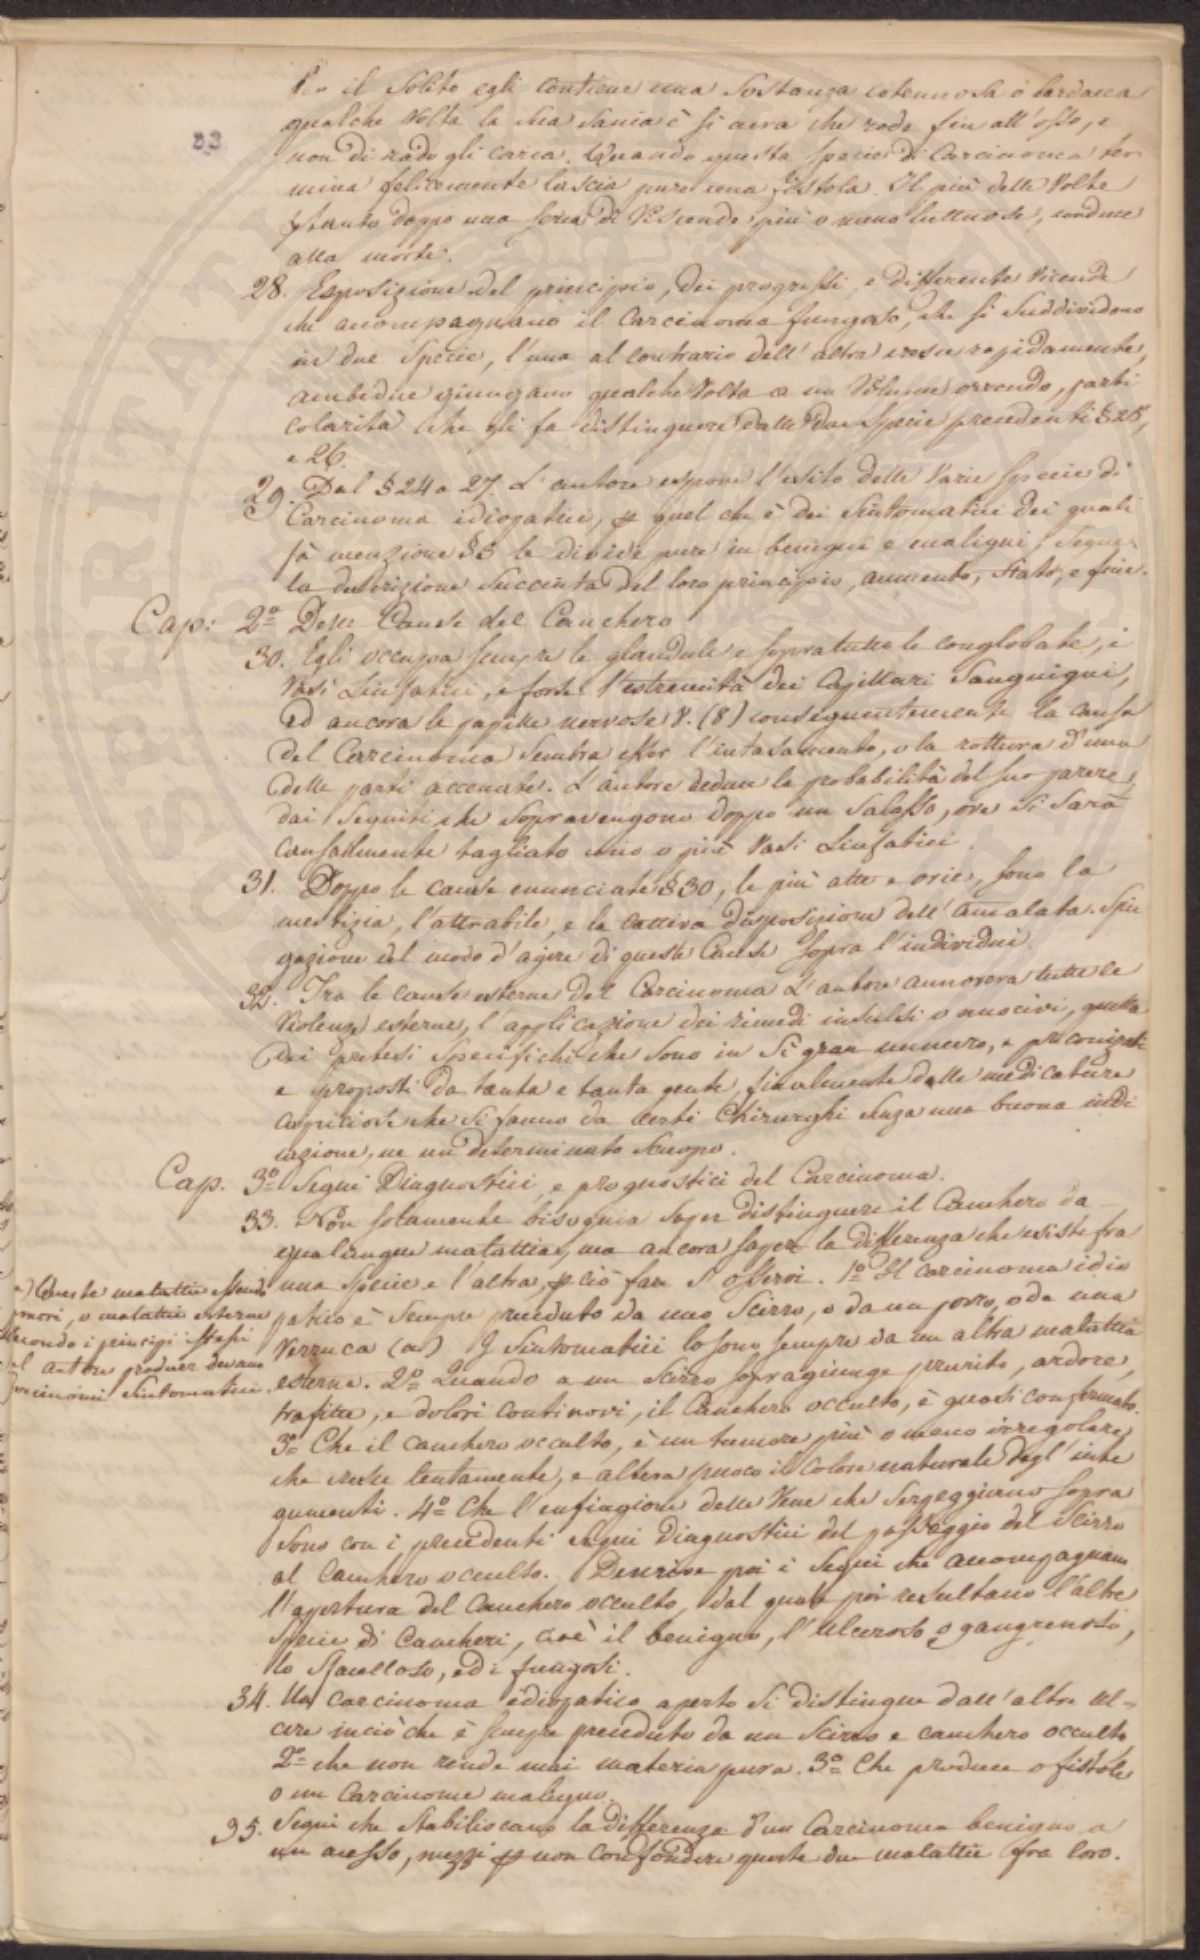 Per il solito egli contiene una sostanza cotennosa o lardacea
qualche volta la sua sania è sì acra che rode fin all'osso, e
non di rado gli caria. Quando questa specie di Carcinoma ter
mina felicemente lascia pure una fistola. Il più delle volte
doppo una seria di vicende più o meno luttuose, conduce
alla morte.
28. Esposizione del principio, dei progressi, e differente vicende
che accompagnano il Carcinoma fungoso, che si suddividono
in due specie, l'una al contrario dell'altra cresce rapidamente,
ambedue giungano qualche volta a un volume orrendo, parti
colarità che gli fa distinguere dalle due specie precedenti § 25,
e 26.
29. Dal § 24 a 27. L'autore espone l'esito delle varie specie di
Carcinoma idiopatici, p quel che è dei sintomatici dei quali
fà menzione § 5 le divide pure in benigni e maligni, segue
la descrizione succinta del loro principio, aumento, stato, e fine.
Cap: 2º Delle Cause del Canchero
30. Egli occupa sempre le glandule e sopratutto le conglobate, i
vasi linfatici, e forse l'estremità dei capillari sanguigni,
ed ancora le papille nervose 8. (8) conseguentemente la causa
del Carcinoma sembra esser l'intasamento, o la rottura d'una
delle parti accenate. L'autore deduce la probabilità del suo parere,
dai seguiti che sopravengono doppo un salasso, ove si sarà
casualmente tagliato uno o più vasi linfatici.
31. Doppo le cause enunciate § 30, le più atte e orie, sono la
mestizia, l'attrabile, e la cattiva disposizione dell'amalata. Spie
gazione del modo d'agire di queste cause sopra l'individui.
32. Tra le cause esterne del Carcinoma L'autore annovera tutte le
violenze esterne, l'applicazione dei rimedi indulsi o nocivi, quella
dei pretesi specifichi che sono in sì gran numero, e preconizati
e proposti da tanta e tanta gente, finalmente dalle medicature
capriciose che si fanno da certi Chirurghi senza una buona indi
cazione, ne un determinato scuopo.
Cap. 3º Segni Diagnostici, e prognostici del Carcinoma.
33. Non solamente bisognia saper distinguere il Canchero da
qualunque malattia, ma ancora sapere la differenza che esiste fra
una specie e l'altra, p ciò fare s'osservi. 1º Il carcinoma idio
patico è sempre preceduto da uno Scirro, o da un porro, o da una
verruca (a) I Sintomatici lo sono sempre da un altra malattia
esterna. 2º Quando a un Scirro sopragiunge prurito, ardore,
trafitte, e dolori continovi, il Canchero occulto, è quasi confermato.
3º Che il canchero occulto, è un tumore più o meno irregolare,
che cresce lentamente, e altera puoco il colore naturale degl'inte
gumenti. 4º Che l'enfiagione delle vene che serpeggiano sopra
sono con i precedenti segni diagnostici del passaggio del Scirro
al Canchero occulto. Descrive poi i segni che accompagnano
l'apertura del Canchero occulto, dal quale poi resultano l'altre
specie di Cancheri, cioè il benigno, l'ulceroso o gangrenoso,
lo sfacelloso, ed i fungosi.
(a) Queste malattie essendo
umori, o malattie esterne
secondo i principi stessi
del autore produr devano
Carcinomi Sintomatici.
34. Un Carcinoma idiopatico aperto si distingue dall'altre ul-
cere inciò che è sempre preceduto da un Scirro e canchero occulto
2º che non rende mai materia pura. 3º Che produce o fistole
o un Carcinoma maligno.
35. Segni che stabiliscano la differenza d'un Carcinoma benigno a
un acesso, mezzi p non confondere queste due malattie fra loro.